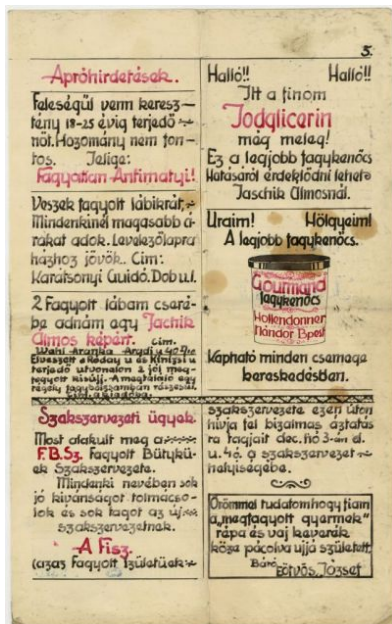 5.
Apróhirdetések.
Feleségül venn keresz-
tény 18-25 évig terjedő
nőt. Hozomány nem fon-
tos. Jelige:
Fagyatlan Antimatyi!
Veszek fagyott lábikrát,
Mindenkinél magasabb á-
rakat adok. Levelezőlapra
házhoz jövök. Cím:
Karátsonyi Guidó. Dob u.1.
2 Fagyott lábam cseré-
be adnám egy Jachik
Álmos képért. Cím.
Wahl Aranka
Elveszett a Ráday u és Kinizsi u
terjedő útvonalon 2 jól meg-
fagyott kisujj. A megtaláló egy
Szakszervezeti ügyek.
Most alakult meg a
F.B.Sz. Fagyott Bütykü-
ek Szakszervezete.
Mindenki nevében sok
jó kívánságot tolmácso-
lok és sok tagot az új
szakszervezetnek.
A Fisz.
(azaz Fagyott Ízületűek
Halló!! Halló!!
Itt a finom
Jodglicerin
még meleg!
Ez a legjobb fagykenőcs
Hatásáról érdeklődni lehet
Jaschik Álmosnál.
Uraim! Hölgyeim!
A legjobb fagykenőcs.
Gourmand
fagykenőcs
Hollendonner
Nándor Bpest
Kapható minden csemege
kereskedésben.
szakszervezete ezen úton
hívja fel bizalmas áztatás
ra tagjait dec. hó 3-án d.
u. 4. ó a szakszervezet
helyiségébe.
Örömmel tudatom hogy fiam
a „megfagyott gyermek"
répa és vaj keverék
közé pácolva ujjá született.
Báró
Eötvös József